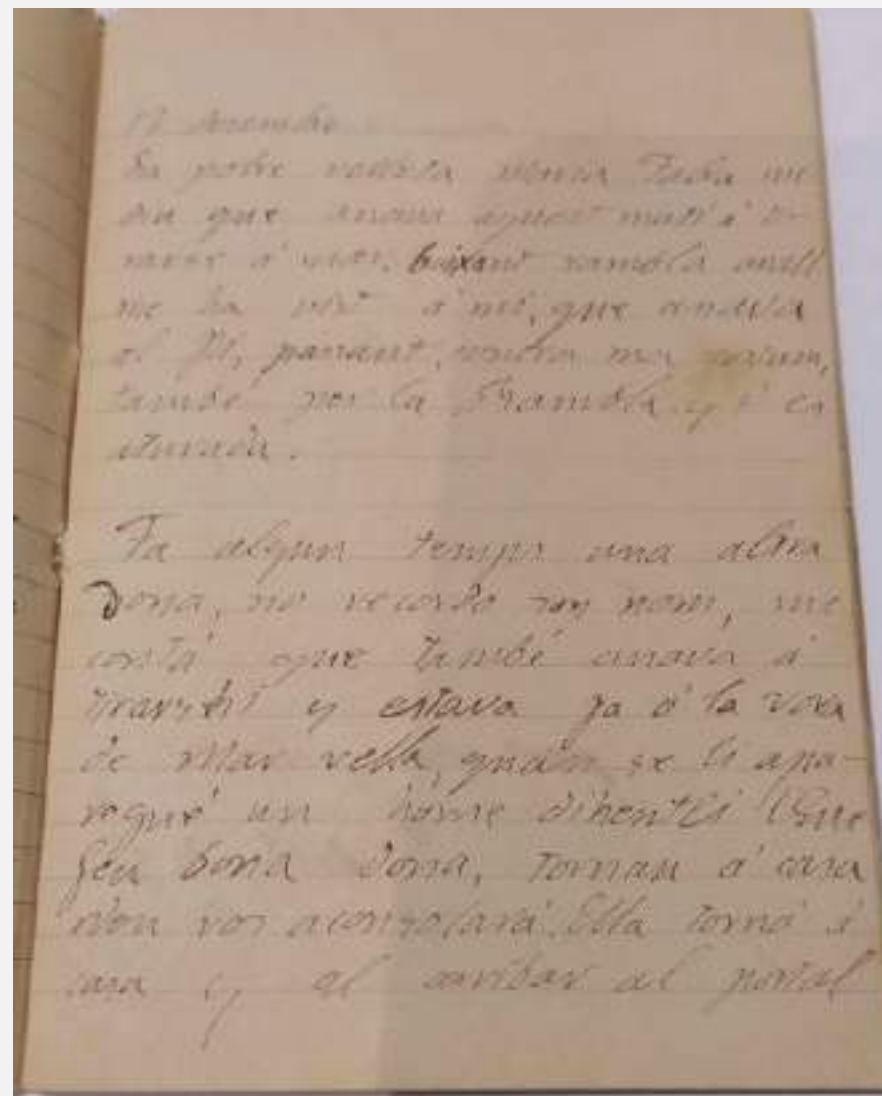 17 desembre
La pobre vedella Tecla me
diu que anava aquest mati á ti-
rarse á mar, baixant rambla avall
me ha vist á mi, que anava
al Pi, passant, contra ma costum,
també per la Rambla y s' es
aturada.
Fa algun temps una altra
Dona, no recordo son nom, me
contá que també anava á
tirarshi y estava ja á la vora
de Mar vella, quan se li apa-
regué un home dihentli Que
feu bona dona, tornau á casa
Deu vos aconsolará. Ella torná á
casa y al arribar al portal